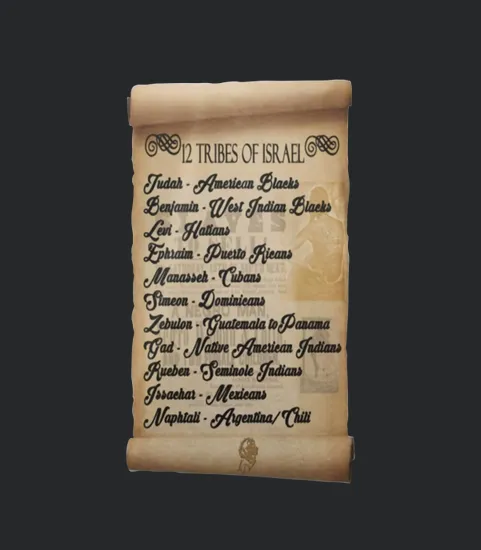 12 TRIBES OF ISRAEL
Judah - American Blacks
Benjamin - West Indian Blacks
Levi - Hatians
Ephraim - Puerto Ricans
Manasseh - Cubans
Simeon - Dominicans
Zebulon - Guatemala to Panama
Gad - Native American Indians
Rueben - Seminole Indians
Issachar - Mexicans
Naphtali - Argentina/Chili